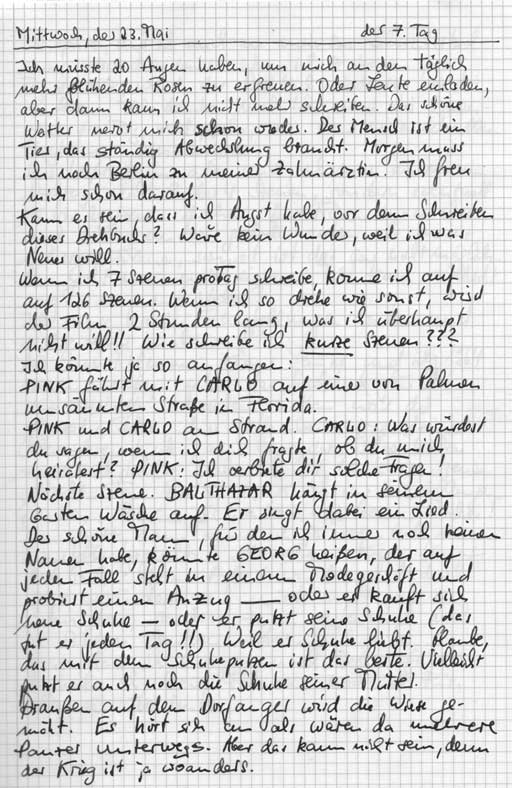 Mittwoch, der 23. Mai der 7. Tag
Ich müsste 20 Augen haben, um mich an den täglich
mehr blühenden Rosen zu erfreuen. Oder Leute einladen,
aber dann kann ich nicht mehr schreiben. Das schöne
Wetter nervt mich schon wieder. Der Mensch ist ein
Tier, das ständig Abwechslung braucht. Morgen muss
ich nach Berlin zu meiner Zahnärztin. Ich freu
mich schon darauf.
Kann es sein, dass ich Angst habe, vor dem Schreiben
dieses Drehbuchs? Wäre kein Wunder, weil ich was
Neues will.
Wenn ich 7 Szenen pro Tag schreibe, komme ich auf
auf 126 Szenen. Wenn ich so drehe wie sonst, wird
der Film 2 Stunden lang, was ich überhaupt
nicht will!! Wie schreibe ich kurze Szenen???
Ich könnte ja so anfangen:
PINK fährt mit CARLO auf einer von Palmen
umsäumten Straße in Florida.
PINK und CARLO am Strand. CARLO: Was würdest
du sagen, wenn ich dich fragte, ob du mich
heiratest? PINK: Ich verbiete dir solche Fragen!
Nächste Szene. BALTHAZAR hängt in seinem
Garten Wäsche auf. Er singt dabei ein Lied.
Der schöne Mann, für den ich immer noch keinen
Namen habe, könnte GEORG heißen, der auf
jeden Fall steht in einem Modegeschäft und
probiert einen Anzug — oder er kauft sich
neue Schuhe — oder er putzt seine Schuhe (das
tut er jeden Tag!!) Weil er Schuhe liebt. Glaube,
das mit dem Schuheputzen ist das beste. Vielleicht
putzt er auch noch die Schuhe seiner Mutter.
Draußen auf dem Dorfanger wird die Wiese ge-
mäht. Es hört sich an als wären da mehrere
Panzer unterwegs. Aber das kann nicht sein, denn
der Krieg ist ja woanders.